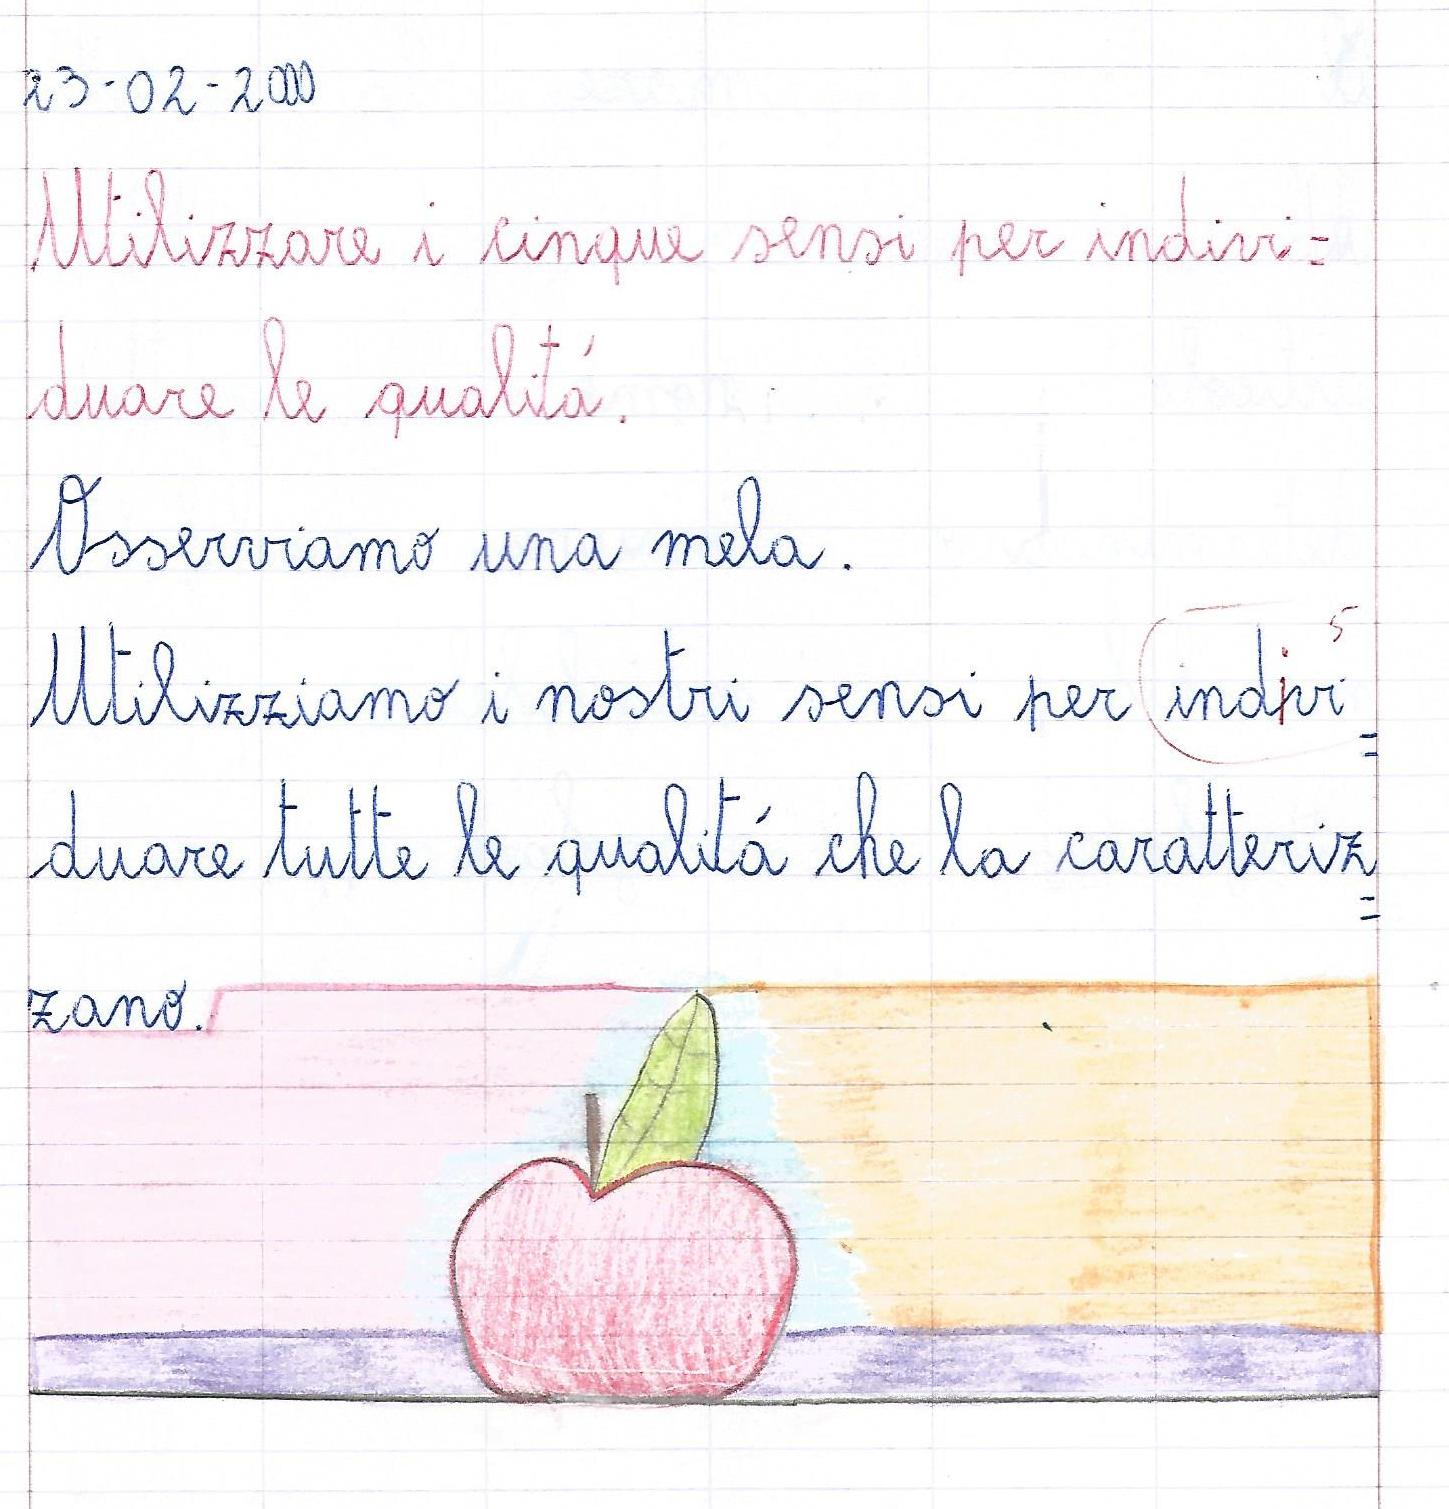 23-02-2000
Utilizzare i cinque sensi per indivi=
duare le qualitá.
Osserviamo una mela.
Utilizziamo i nostri sensi per indivi=
duare tutte le qualitá che la caratteriz=
zano.